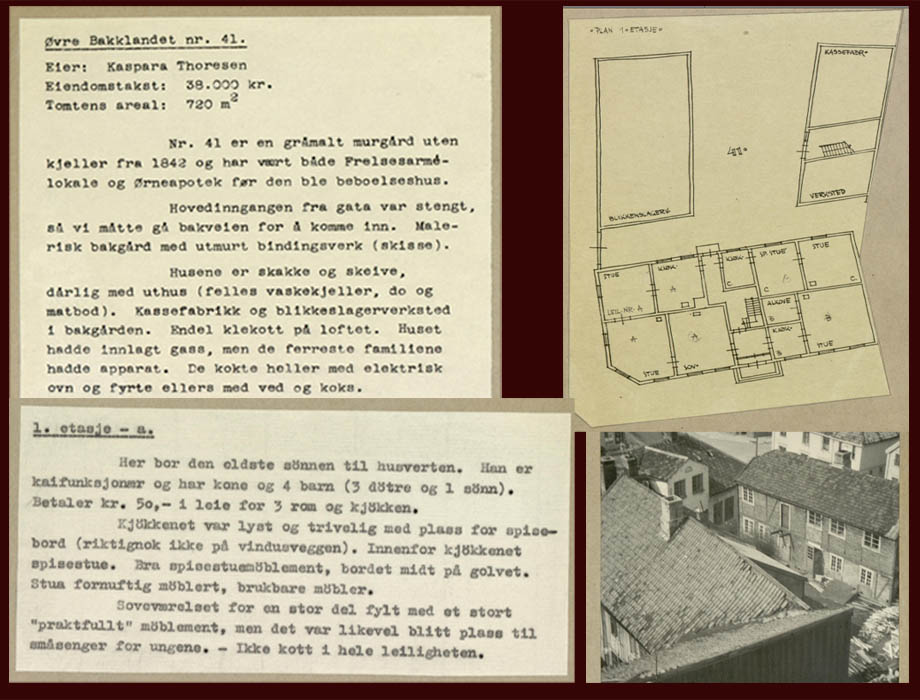 Øvre Bakklandet nr. 41.
Eier: Kaspara Thoresen
Eiendomstakst: 38.000 kr.
Tomtens areal: 720 m2
Nr. 41 er en gråmalt murgård uten
kjeller fra 1842 og har vært både Frelsesarmé-
lokale og Ørneapotek før den ble beboelseshus.
Hovedinngangen fra gata var stengt,
så vi måtte gå bakveien for å komme inn. Male-
risk bakgård med utmurt bindingsverk (skisse).
Husene er skakke og skeive,
dårlig med uthus (felles vaskekjeller, do og
matbod). Kassefabrikk og blikkeslagerverksted
i bakgården. Endel klekott på loftet. Huset
hadde innlagt gass, men de ferreste familiene
hadde apparat. De kokte heller med elektrisk
ovn og fyrte ellers med ved og koks.
1. etasje - a.
Her bor den eldste sönnen til husverten. Han er
kaifunksjonær og har kone og 4 barn (3 dötre og 1 sönn).
Betaler kr. 50,- i leie for 3 rom og kjökken.
Kjökkenet var lyst og trivelig med plass for spise-
bord (riktignok ikke på vindusveggen). Innenfor kjökkenet
spisestue. Bra spisestuemöblement, bordet midt på golvet.
Stua fornuftig möblert, brukbare möbler.
Soveværelset for en stor del fylt med et stort
"praktfullt" möblement, men det var likevel blitt plass til
småsenger for ungene. - Ikke kott i hele leiligheten.
PLAN 1 ETASJE
KASSEFABR.
41
VERKSTED
BLIKKENSLAGERV.
STUE
KJØK.
A
LEIL. NR. A
KJØK.
C
SP. STUE
C
STUE
C
A
STUE
A
SOV.
ALKOVE
B
KJØK.
B
B
STUE